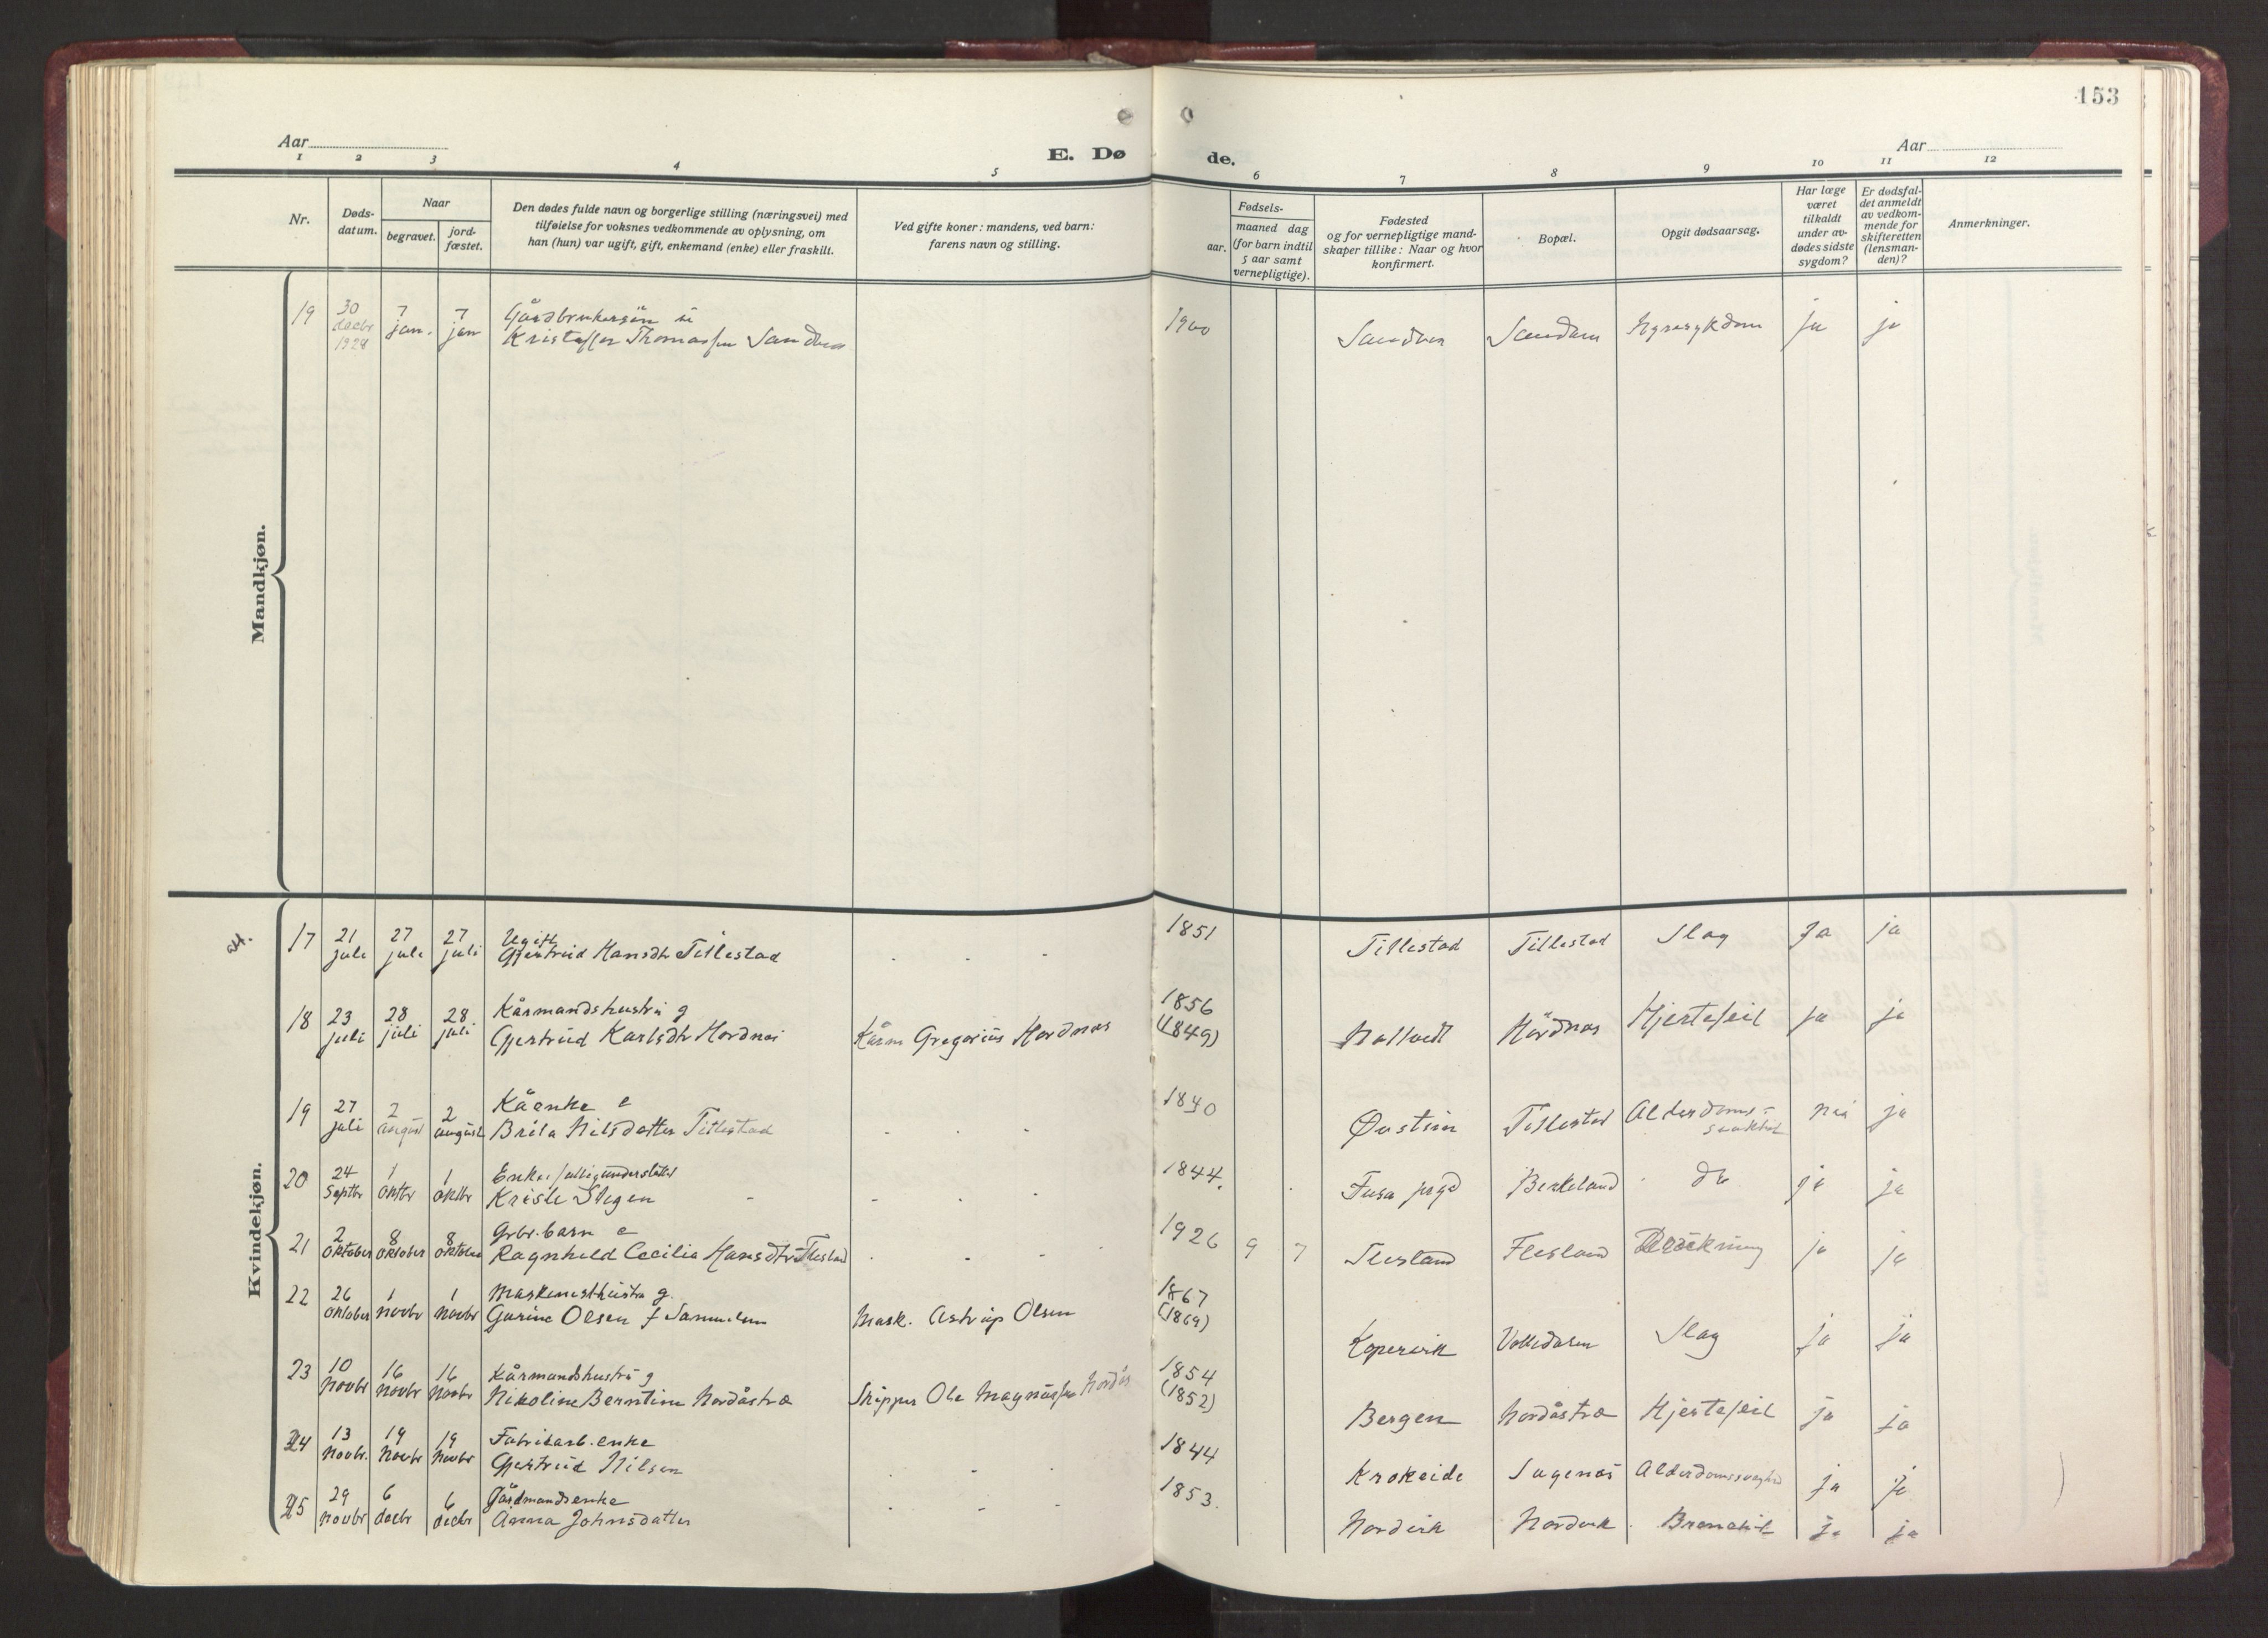 153
Aar
E. Dø
de.
Aar
1 2 3 4 5 6 7 8 9 10 11 12
Nr.
Døds-
datum.
Naar
begravet.
jord-
fæstet.
Den dødes fulde navn og borgerlige stilling (næringsvei) med
tilføielse for voksnes vedkommende av oplysning, om
han (hun) var ugift, gift, enkemand (enke) eller fraskilt.
Ved gifte koner: mandens, ved barn:
farens navn og stilling.
Fødsels-
aar.
maaned dag
(for barn indtil
5 aar samt
vernepligtige).
Fødested
og for vernepligtige mand-
skaper tillike: Naar og hvor
konfirmert.
Bopæl.
Opgit dødsaarsag.
Har læge
været
tilkaldt
under av-
dødes sidste
sygdom?
Er dødsfal-
det anmeldt
av vedkom-
mende for
skifteretten
(lensman-
den)?
Anmerkninger.
Mandkjøn.
19 30 7 7 Gårdbrukersön
decbr jan. jan Kristoffer Thomassen 1900 ja ja
1928
Kvindekjøn.
17 21 27 27 Ugift 1851
juli juli juli Gjertrud Hansdtr Tillestad Tillestad Tillestad Slag Ja ja
18 23 28 28 Kårmandshustru g 1856
juli juli juli Gjertrud Karlsdtr Hordnes Kårm Gregorius Hordnes (1849) Hordnes Hjertefeil ja ja
19 27 2 2 Kåenke e 1840
juli august august Brita Nilsdatter Tillestad Tillestad Alderdoms- nei ja
20 24 1 1 Enke, 1844.
Septbr Oktbr Oktbr Stegen Fusa Birkeland do ja ja
21 2 8 8 Grbr. barn e 1926 9 7
Oktober Oktober Oktober Ragnhild Cecilia Hansdtr Flesland Flesland Flesland ja ja
22 26 1 1 g. 1867
Oktober Novbr Novbr Gurine Olsen f Mask. Astrup Olsen (1869) Kopervik Slag ja ja
23 10 16 16 Kårmandshustru g 1854
Novbr Novbr Novbr Nikoline Berntine Nordåstræ Skipper Ole Magnussen (1852) Bergen Nordåstræ Hjertefeil ja ja
24 13 19 19 Fabrikarb. enke 1844
Novbr. Novbr Novbr Gjertrud Nilsen Krokeide ja ja
25 29 6 6 Gårdmandsenke 1853.
Novbr decbr decbr Anna Johnsdatter Nordvik Nordvik ja ja